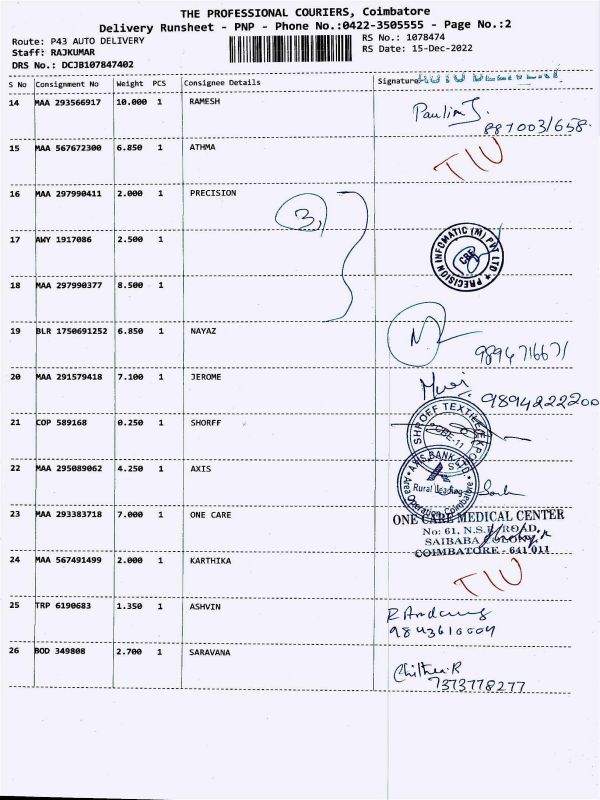 THE PROFESSIONAL COURIERS, Coimbatore
Delivery Runsheet - PNP - Phone No.:0422-3505555 - Page No.:2
Route: P43 AUTO DELIVERY
RS No.: 1078474
Staff: RAJKUMAR
RS Date: 15-Dec-2022
DRS No.: DCJB107847402
S No Consignment No Weight PCS Consignee Details Signature AUTO DELIVERY
14 MAA 293566917 10.000 1 RAMESH Paulin J.
887003/658
15 MAA 567672300 6.850 1 ATHMA TIU
16 MAA 297990411 2.000 1 PRECISION
3
17 AWY 1917086 2.500 1
PRECISION INFOMATIC (M) PVT LTD
CBE
18 MAA 297990377 8.500 1
19 BLR 1750691252 6.850 1 NAYAZ N
9894716671
20 MAA 291579418 7.100 1 JEROME
9894222200
21 COP 589168 0.250 1 SHORFF
SHROFF TEXTILE
CBE-11
22 MAA 295089062 4.250 1 AXIS
AXIS BANK LTD
Rural Lending
Area Operation, Coimbatore
23 MAA 293383718 7.000 1 ONE CARE ONE CARE MEDICAL CENTER
No: 61, N.S.R. ROAD,
SAIBABA COLONY,
COIMBATORE - 641 011
24 MAA 567491499 2.000 1 KARTHIKA TIU
25 TRP 6190683 1.350 1 ASHVIN
9843610009
26 BOD 349808 2.700 1 SARAVANA Chithra R
7373778277